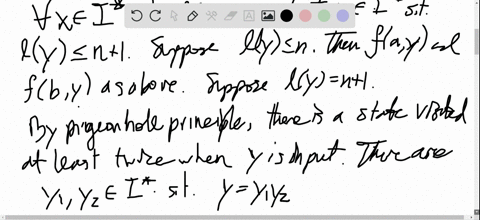 ∀x∈I* ∈ I* s.t.
l(y) ≤ n+1. Suppose l(y) ≤ n. Then f(a,y) and
f(b,y) as above. Suppose l(y) = n+1.
By pigeonhole principle, there is a state visited
at least twice when y is input. There are
y₁, y₂ ∈ I* st. y = y₁y₂